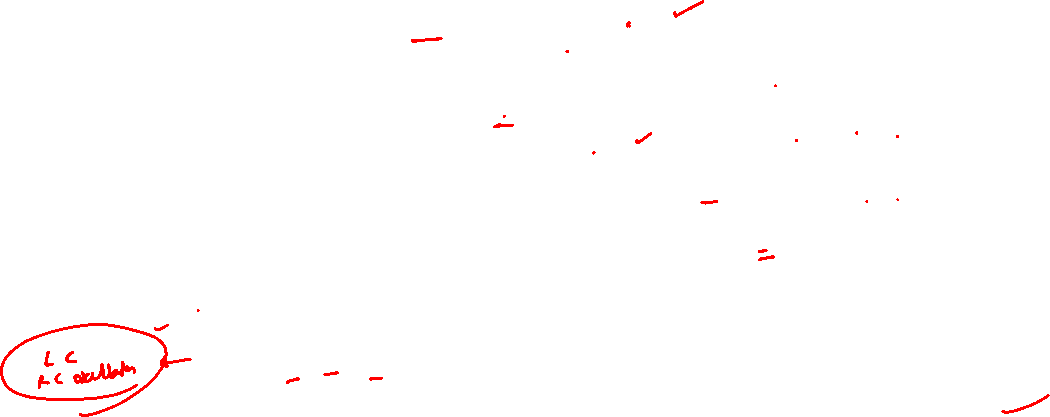 LC
RC oscillators